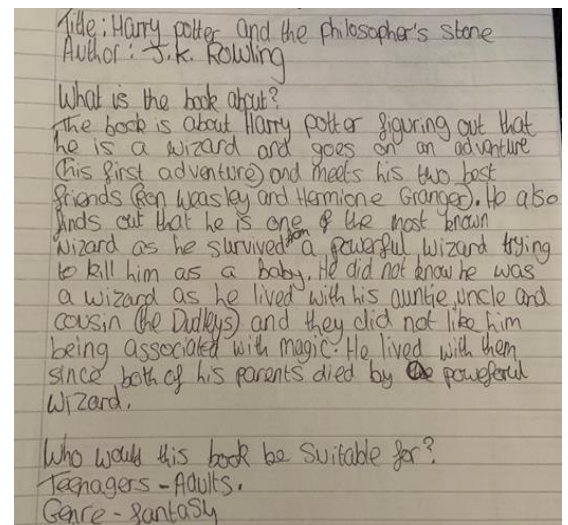 Title: Harry potter and the philosopher's stone
Author: J.K. Rowling
What is the book about?
The book is about Harry potter figuring out that
he is a wizard and goes on an adventure
(his first adventure) and meets his two best
friends (Ron Weasley and Hermione Granger). He also
finds out that he is one of the most known
wizard as he survived from a powerful wizard trying
to kill him as a baby. He did not know he was
a wizard as he lived with his auntie, uncle and
cousin (the Dudleys) and they did not like him
being associated with magic. He lived with them
since both of his parents died by a poweferul
wizard.
Who would this book be suitable for?
Teenagers - Adults.
Genre - fantasy